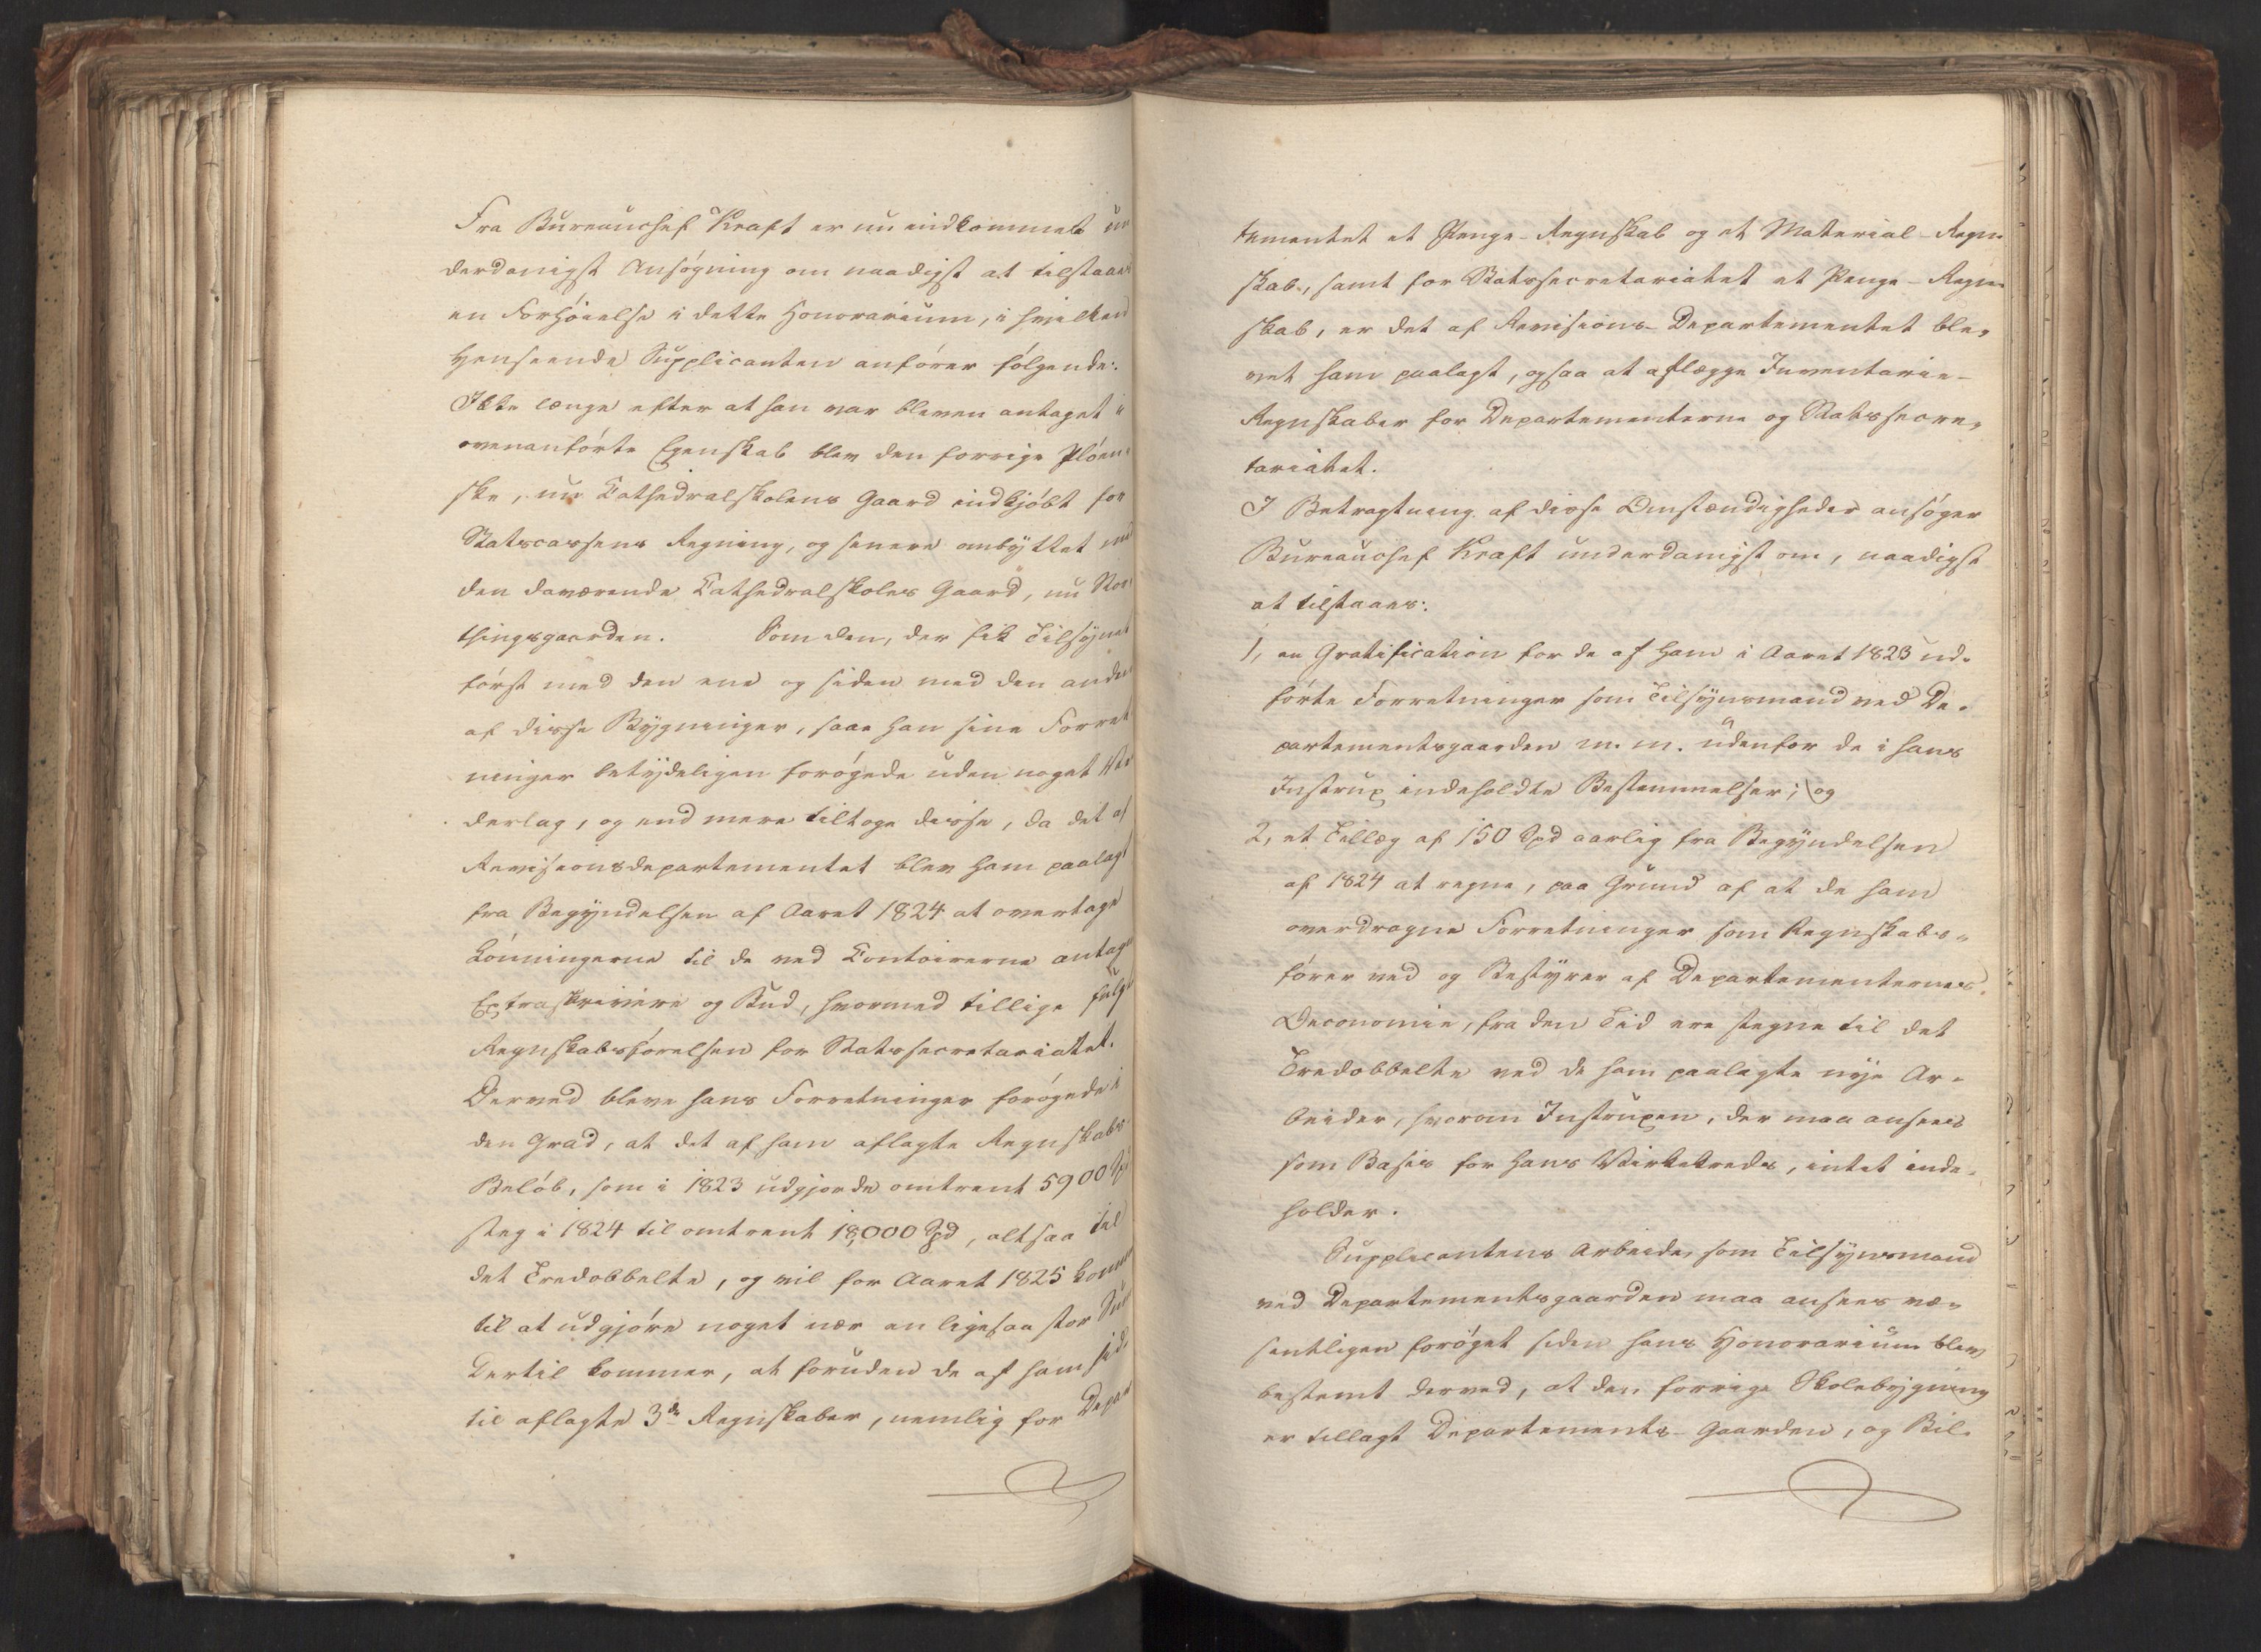 Fra Bureauchef Kraft er nu indkommet un
derdanigst Ansøgning om naadigst at tilstaaes
en Forhøielse i dette Honorarium, i hvilken
Henseende Supplicanten anfører følgende:
Ikke længe efter at han var bleven antaget i
ovenanførte Egenskab blev den forrige Pløen-
ske, nu Cathedralskolens Gaard indkjøbt for
Statscassens Regning, og senere ombyttet med
den daværende Cathedralskoles Gaard, nu Stor
thingsgaarden. Som den, der fik Tilsynet
først med den ene og siden med den anden
af disse Bygninger, saae han sine Forret
ninger betydeligen forøgede uden noget Ve
derlag, og end mere tiltoge disse, da det af
Revisionsdepartementet blev ham paalagt
fra Begyndelsen af Aaret 1824 at overtage
Lønningerne til de ved Contoirerne antagne
Extraskrivere og Bud, hvormed tillige fulgte
Regnskabsførelsen for Statssecretariatet.
Derved bleve hans Forretninger forøgede i
den Grad, at det af ham aflagte Regnskabs
Beløb, som i 1823 udgjorde omtrent 5900 Spd
steg i 1824 til omtrent 18,000 Spd, altsaa til
det Tredobbelte, og vil for Aaret 1825 komme
til at udgjøre noget nær en ligesaa stor Sum
Dertil kommer, at foruden de af ham hid
til aflagte 3de Regnskaber, nemlig for Depar
tementet et Penge-Regnskab og et Material-Regn
skab, samt for Statssecretariatet et Penge-Regn
skab, er det af Revisions-Departementet ble-
vet ham paalagt, ogsaa at aflægge Inventarie-
Regnskaber for Departementerne og Statssecre-
tariatet.
I Betragtning af disse Omstændigheder ansøger
Bureauchef Kraft underdanigst om, naadigst
at tilstaaes:
1, en Gratification for de af ham i Aaret 1823 ud-
førte Forretninger som Tilsynsmand ved De-
partementsgaarden m. m. udenfor de i hans
Instrux indeholdte Bestemmelser; og
2, et Tillæg af 150 Spd aarlig fra Begyndelsen
af 1824 at regne, paa Grund af at de ham
overdragne Forretninger som Regnskabs-
fører ved og Bestyrer af Departementernes
Oeconomie, fra den Tid ere stegne til det
Tredobbelte ved de ham paalagte nye Ar-
beider, hvorom Instruxen, der maa ansees
som Basis for hans Virkekreds, intet inde-
holder.
Supplicantens Arbeide, som Tilsynsmand
ved Departementsgaarden maa ansees væ-
sentligen forøget siden hans Honorarium blev
bestemt derved, at den forrige Skolebygning
er tillagt Departements-Gaarden, og Bil-